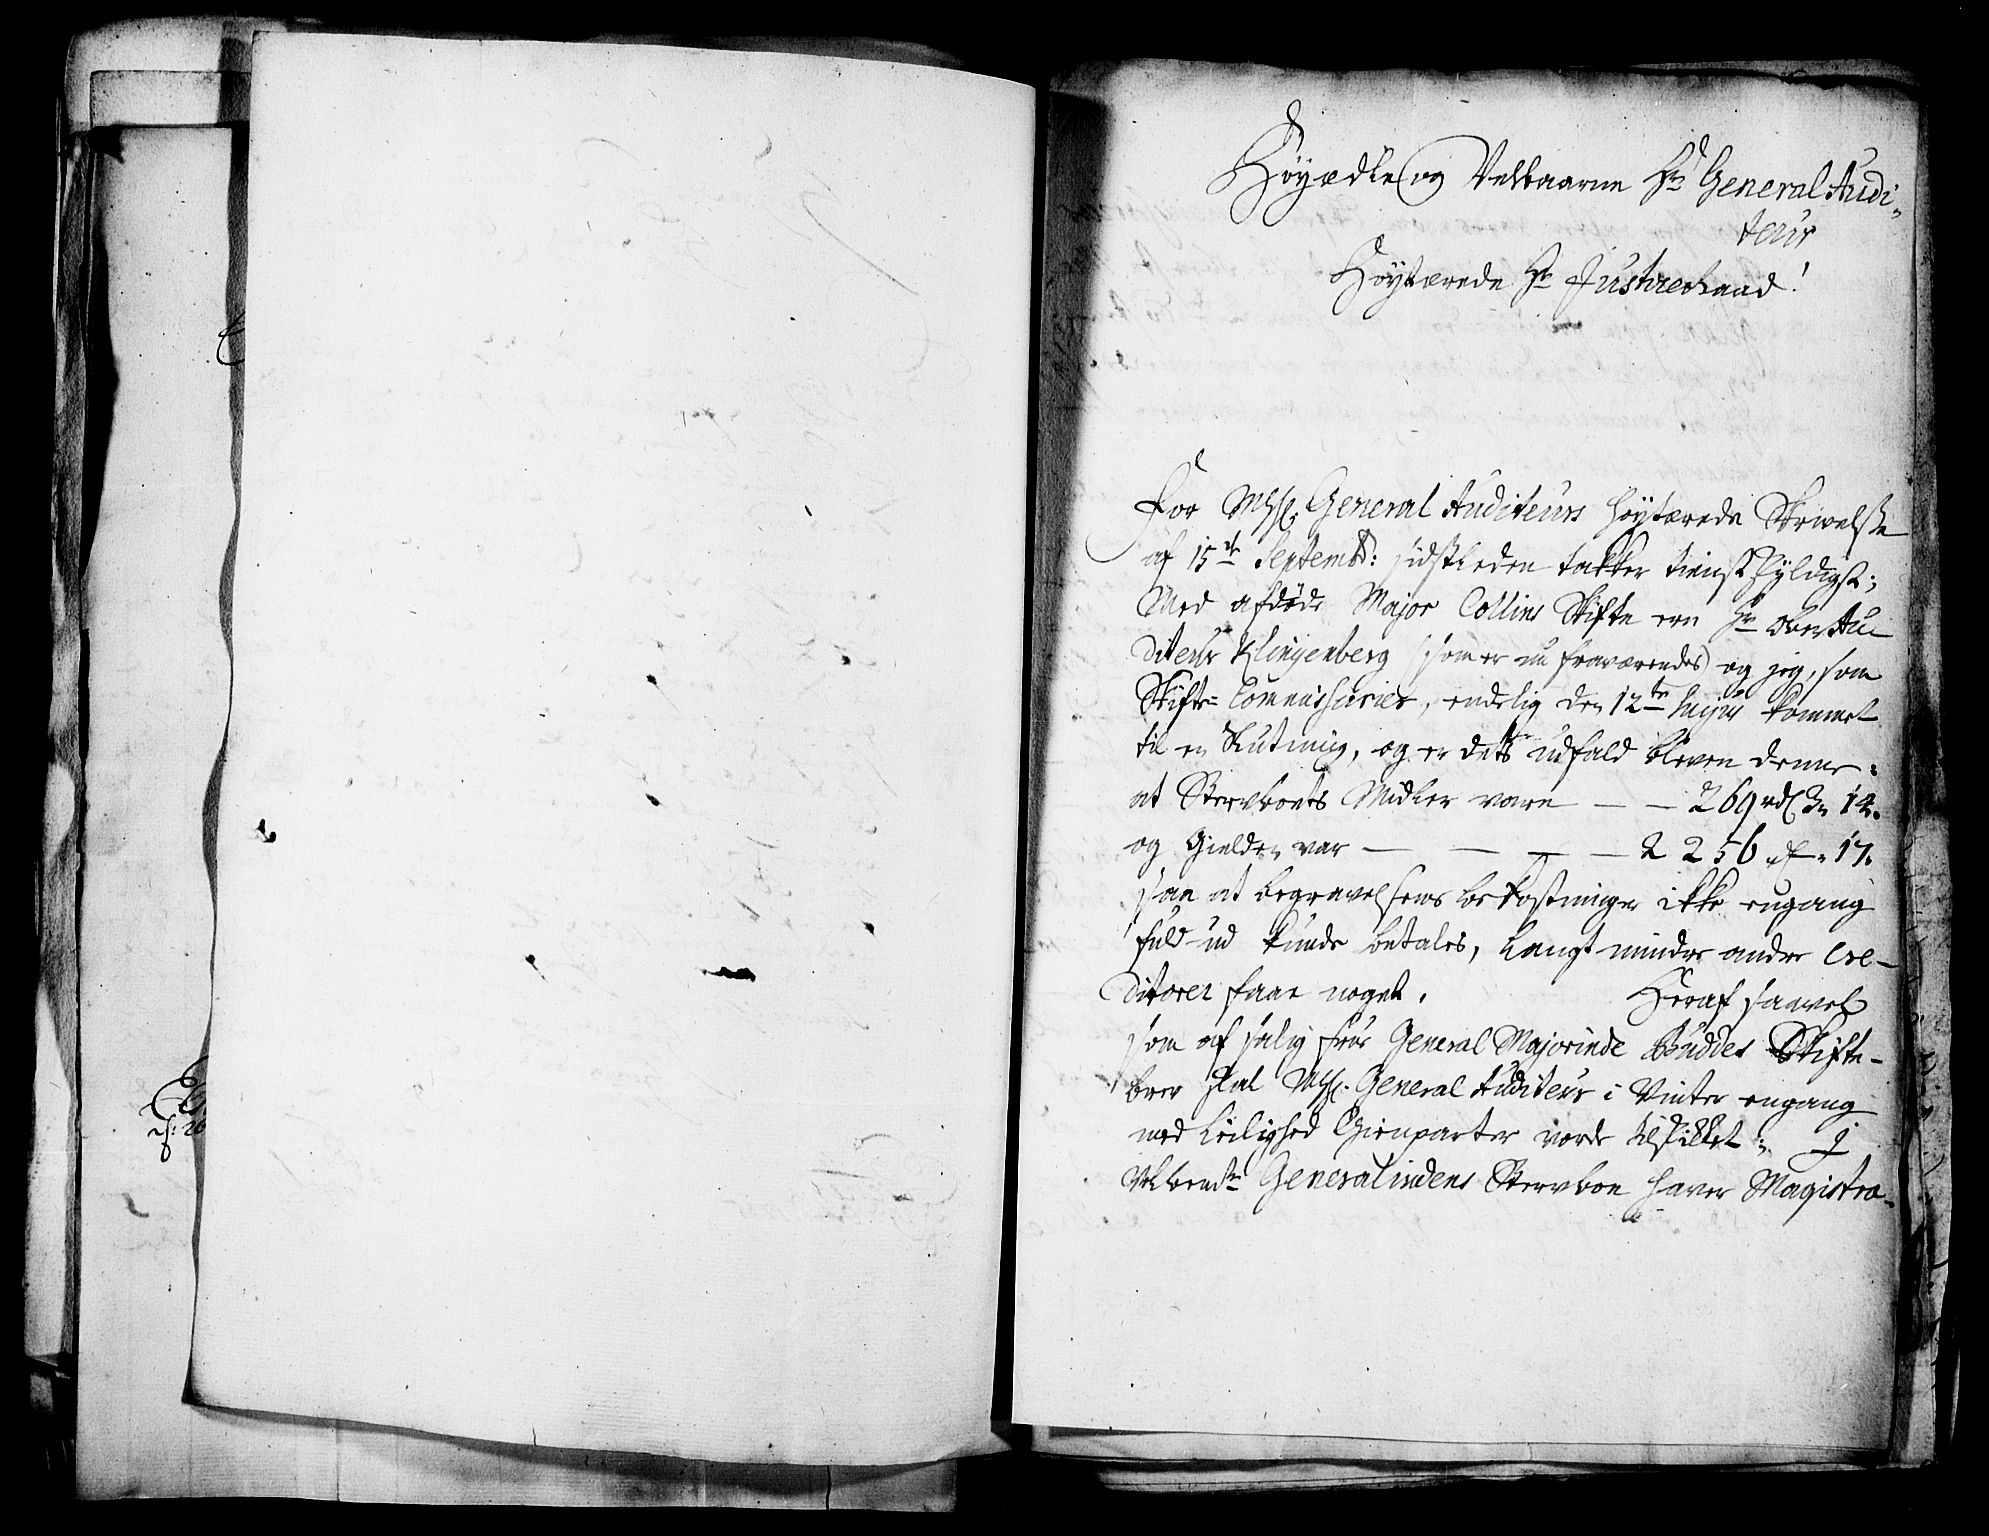 Høyædle og Velbaarne Hr General Audi-
teur
Høytærede Hr Justice Raad!
For Mhl. General Auditeurs høytærede Skrivelsse
af 15de Septembr: sidstleden takker tienstskyldigst;
Med afdøde Major Collins Skifte ere Hr Ober Au-
diteur Klingenberg (som er nu fraværendes) og jeg, som
Skifte-Commissarier, endelig den 12te hujus kommet
til en Slutning, og er dets udfald bleven denne:
at Stervboets Midler vare — — 269 rdl 3 14.
og Gielden var — — — — 2256 17.
saa at begravelsens bekostninger ikke engang
fuld ud kunde betales, langt mindre andre Cre-
ditorer faae noget. Heraf saavel
som af salig Frue General Majorinde Buddes Skifte-
brev skal Mhl. General Auditeur i Vinter engang
med Leilighed Gienparter vorde tilskikket; J
Velbemte Generalindens Stervboe haver Magistra-